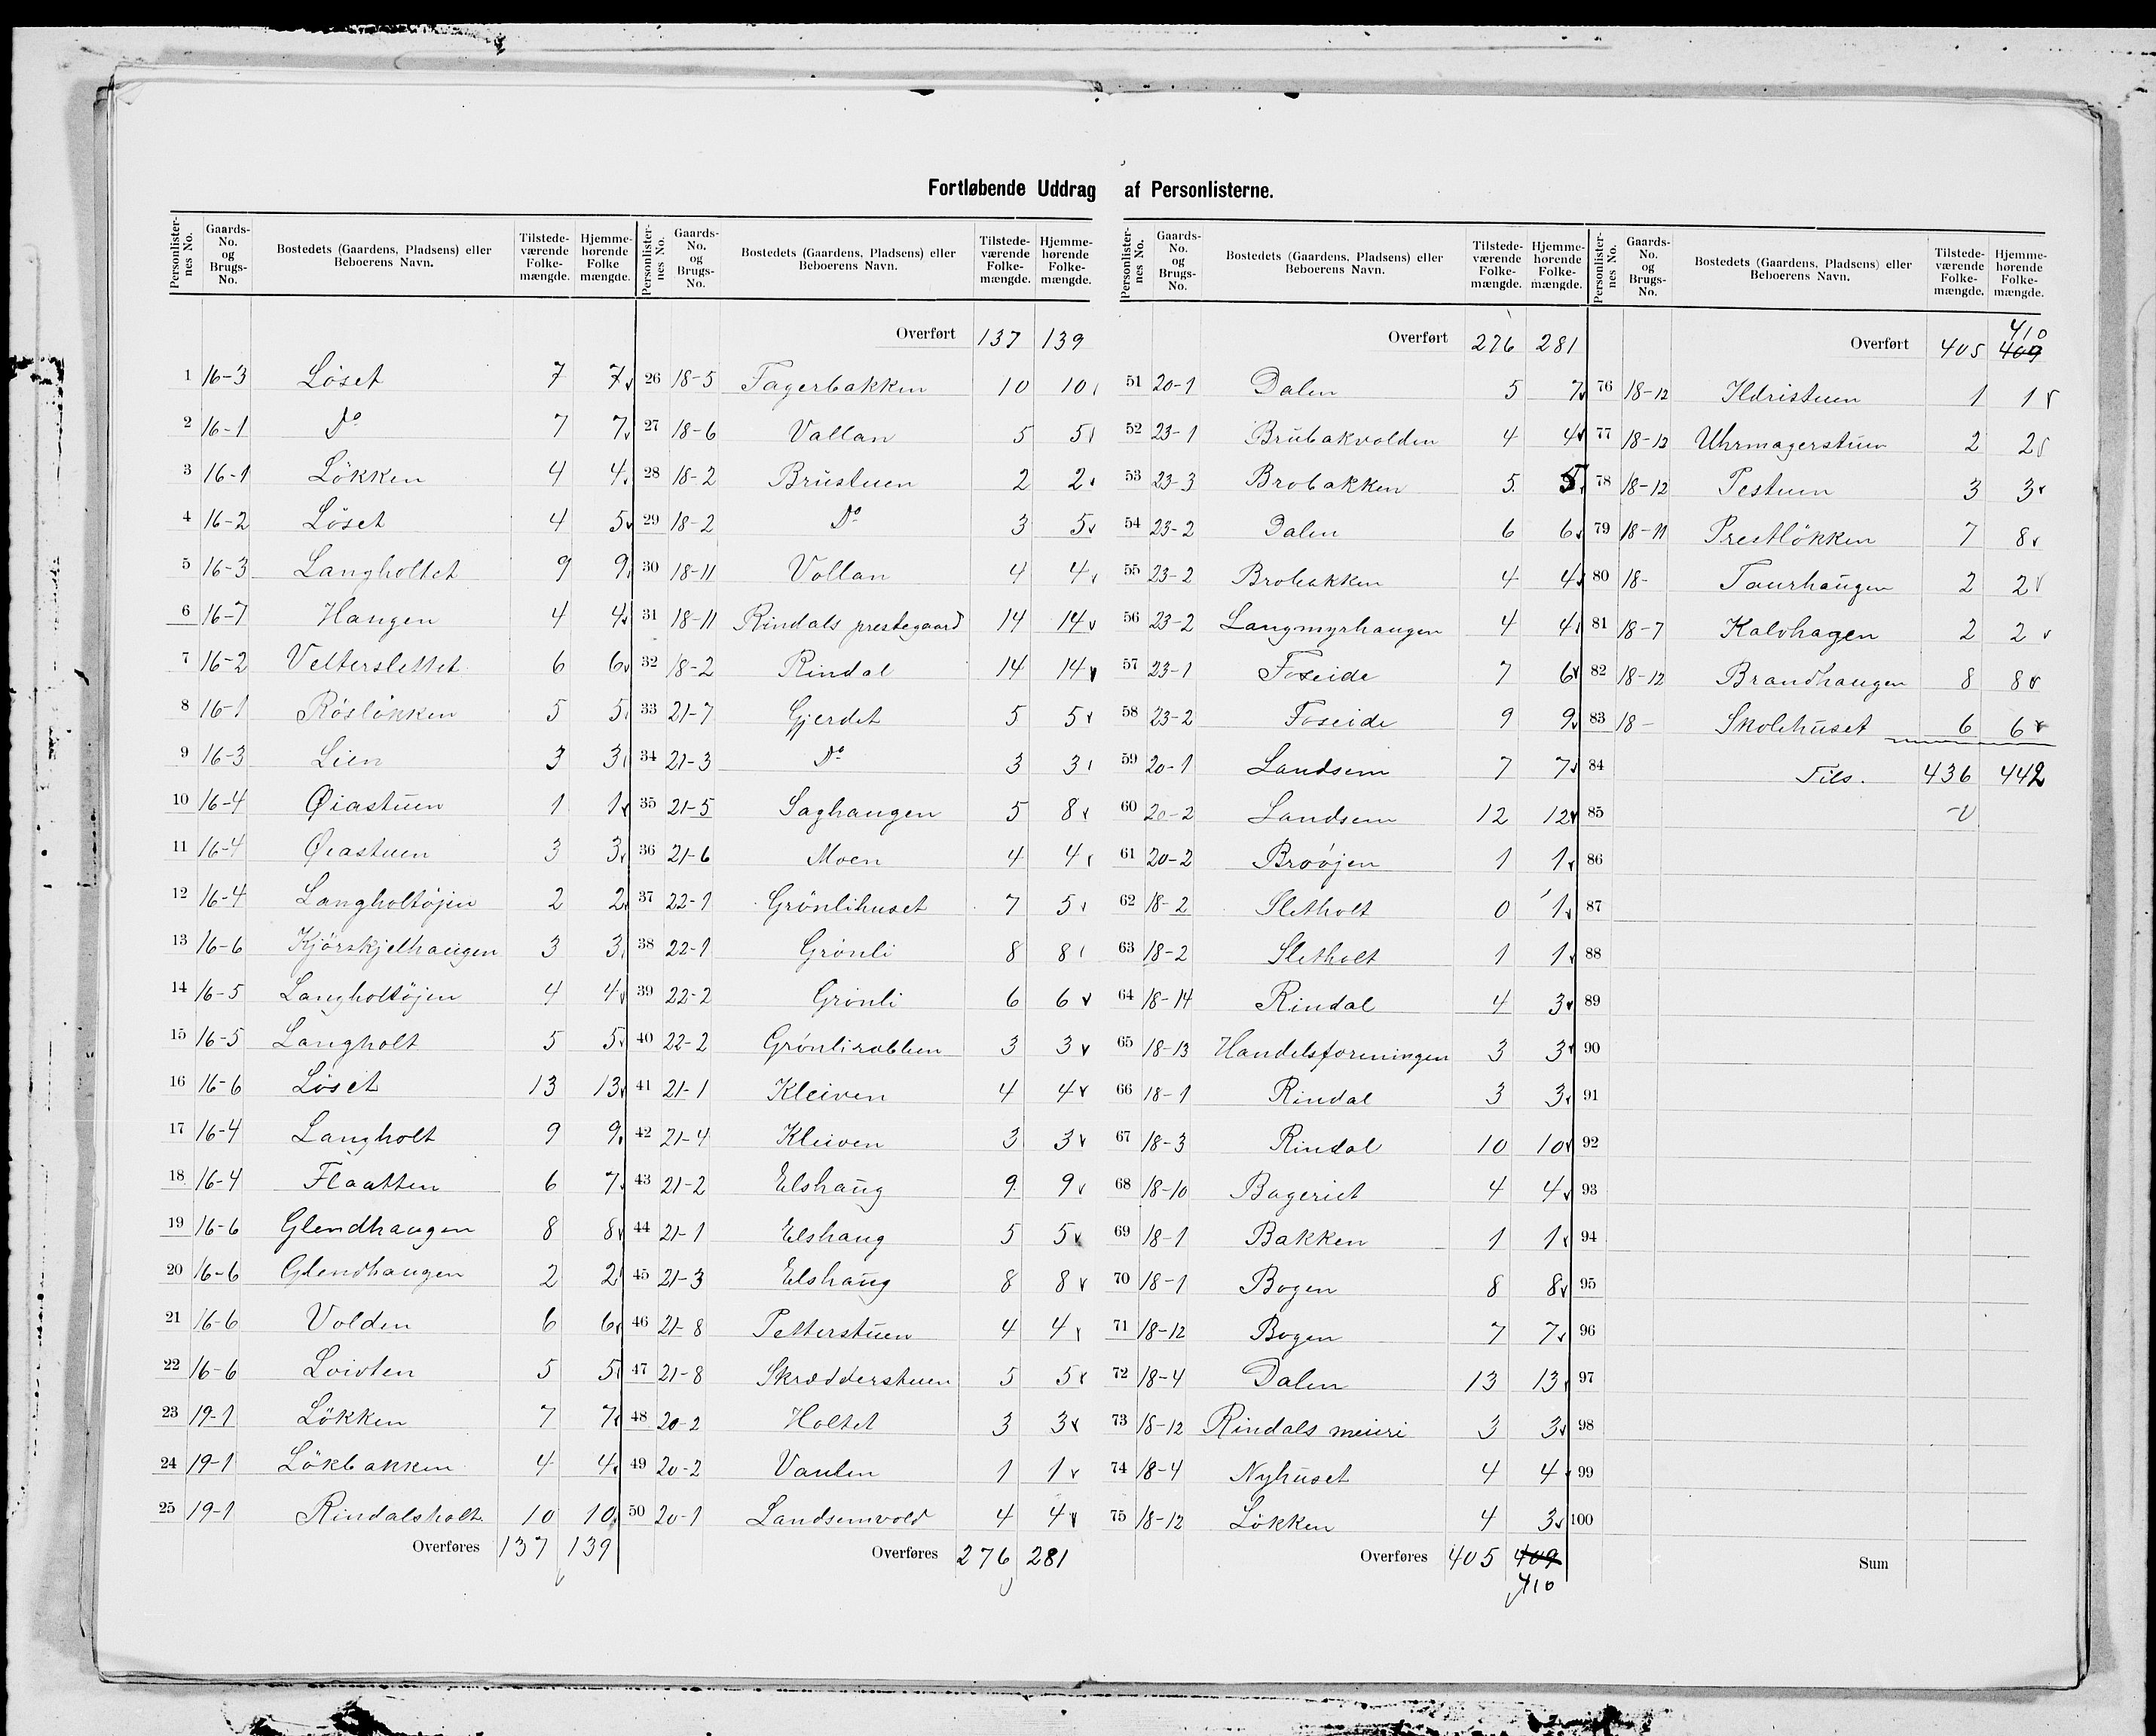 Fortløbende Uddrag af Personlisterne.
Personlister-nes No. Gaards-No. og Brugs-No. Bostedets (Gaardens, Pladsens) eller Beboerens Navn. Tilstede-værende Folke-mængde. Hjemme-hørende Folke-mængde.
1 16-3 Löset 7 7
2 16-1 Do 7 7
3 16-1 Lökken 4 4
4 16-2 Löset 4 5
5 16-3 Langholtet 9 9
6 16-7 Haugen 4 4
7 16-2 Vetterslettet 6 6
8 16-1 Röslökken 5 5
9 16-3 Lien 3 3
10 16-4 Øiastuen 1 1
11 16-4 Øiastuen 3 3
12 16-4 Langholtöjen 2 2
13 16-6 Kjörskjelhaugen 3 3
14 16-5 Langholtöjen 4 4
15 16-5 Langholt 5 5
16 16-6 Löset 13 13
17 16-4 Langholt 9 9
18 16-4 Flaatten 6 7
19 16-6 Glendhaugen 8 8
20 16-6 Glendhaugen 2 2
21 16-6 Volden 6 6
22 16-6 5 5
23 19-1 Lökken 7 7
24 19-1 Lökbakken 4 4
25 19-1 Rindalsholt 10 10
Overføres 137 139
Personlister-nes No. Gaards-No. og Brugs-No. Bostedets (Gaardens, Pladsens) eller Beboerens Navn. Tilstede-værende Folke-mængde. Hjemme-hørende Folke-mængde.
Overført 137 139
26 18-5 Fagerbakken 10 10
27 18-6 Vallan 5 5
28 18-2 Brüstuen 2 2
29 18-2 Do 3 5
30 18-11 Vollan 4 4
31 18-11 Rindals prestegaard 14 14
32 18-2 Rindal 14 14
33 21-7 Gjerdet 5 5
34 21-3 Do 3 3
35 21-5 Saghaugen 5 8
36 21-6 Moen 4 4
37 22-1 Grönlihuset 7 5
38 22-1 Grönli 8 8
39 22-2 Grönli 6 6
40 22-2 Grönlirabben 3 3
41 21-1 Kleiven 4 4
42 21-4 Kleiven 3 3
43 21-2 Elshaug 9 9
44 21-1 Elshaug 5 5
45 21-3 Elshaug 8 8
46 21-8 Petterstuen 4 4
47 21-8 Skrædderstuen 5 5
48 20-2 Holtet 3 3
49 20-2 Vaulen 1 1
50 20-1 Landsemvold 4 4
Overføres 276 281
Personlister-nes No. Gaards-No. og Brugs-No. Bostedets (Gaardens, Pladsens) eller Beboerens Navn. Tilstede-værende Folke-mængde. Hjemme-hørende Folke-mængde.
Overført 276 281
51 20-1 Dalen 5 7
52 23-1 Brübakvolden 4 4
53 23-3 Brobakken 5 5
54 23-2 Dalen 6 6
55 23-2 Brobakken 4 4
56 23-2 Langmyrhaugen 4 4
57 23-1 Foseide 7 6
58 23-2 Foseide 9 9
59 20-1 Landsem 7 7
60 20-2 Landsem 12 12
61 20-2 Broöjen 1 1
62 18-2 Sletholt 0 1
63 18-2 Sletholt 1 1
64 18-14 Rindal 4 3
65 18-13 Handelsforeningen 3 3
66 18-1 Rindal 3 3
67 18-3 Rindal 10 10
68 18-10 Bageriet 4 4
69 18-1 Bakken 1 1
70 18-1 Bogen 8 8
71 18-12 Bogen 7 7
72 18-4 Dalen 13 13
73 18-12 Rindals meieri 3 3
74 18-4 Nyhuset 4 4
75 18-12 Lökken 4 3
Overføres 405 409
410
Personlister-nes No. Gaards-No. og Brugs-No. Bostedets (Gaardens, Pladsens) eller Beboerens Navn. Tilstede-værende Folke-mængde. Hjemme-hørende Folke-mængde.
410
Overført 405 409
76 18-12 Ildristuen 1 1
77 18-12 Uhrmagerstuen 2 2
78 18-12 Pestuen 3 3
79 18-11 Prestlökken 7 8
80 18- Taurhaugen 2 2
81 18-7 Kalvhagen 2 2
82 18-12 Brandhaugen 8 8
83 18- Skolehuset 6 6
84 Tils. 436 442
85
86
87
88
89
90
91
92
93
94
95
96
97
98
99
100
Sum